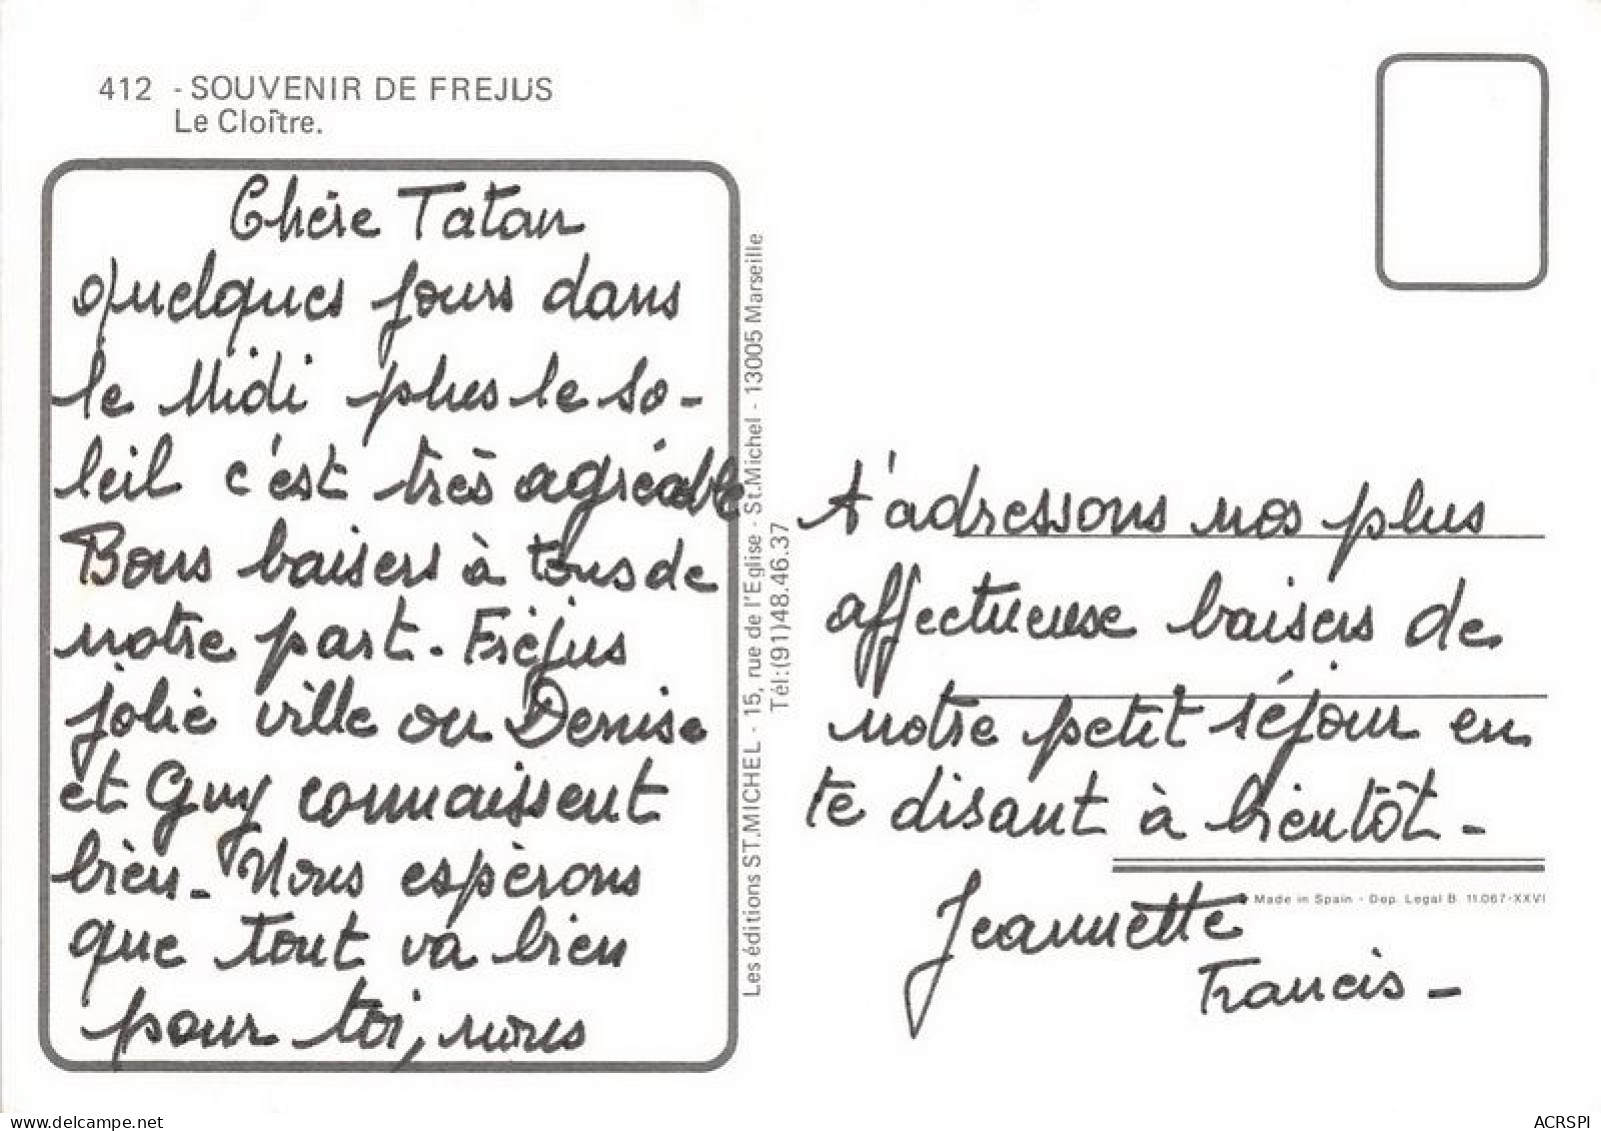 412 - SOUVENIR DE FREJUS
Le Cloître.
Chère Tatan
quelques jours dans
le Midi plus le so-
leil c'est très agréable
Bons baisers à tous de
notre part. Fréjus
jolie ville ou Denise
et Guy connaissent
bien - Nous espèrons
que tout va bien
pour toi, nous
t'adressons nos plus
affectueuse baisers de
notre petit séjour en
te disant à bientôt -
Jeannette
Francis -
Les éditions ST.MICHEL - 15, rue de l'Eglise - St.Michel - 13005 Marseille
Tél:(91)48.46.37
Made in Spain - Dep. Legal B. 11.067-XXVI
delcampe.net
ACRSPI